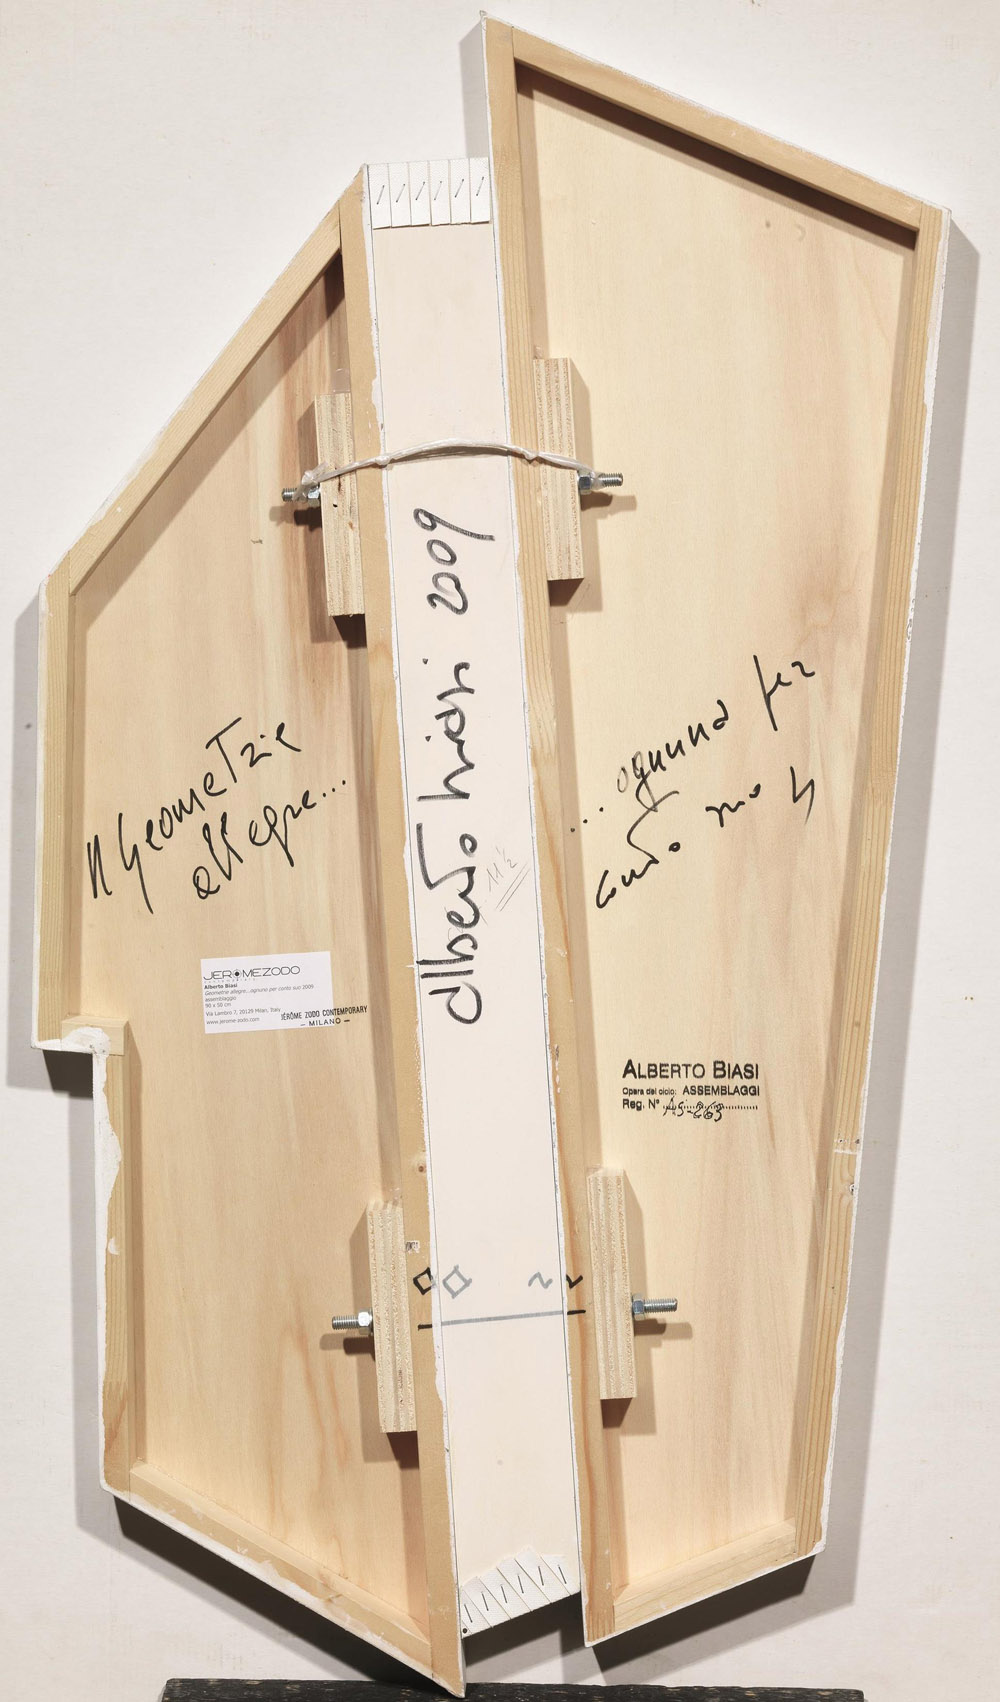 "Geometrie
allegre...
...ognuna per
conto suo"
alberto biasi 2009
11½
JEROMEZODO
Alberto Biasi
Geometrie allegre...ognuno per conto suo 2009
assemblaggio
90 x 50 cm
Via Lambro 7, 20129 Milan, Italy
www.jerome-zodo.com
JÉRÔME ZODO CONTEMPORARY
– MILANO –
ALBERTO BIASI
Opera del ciclo: ASSEMBLAGGI
Reg. N° AS-263